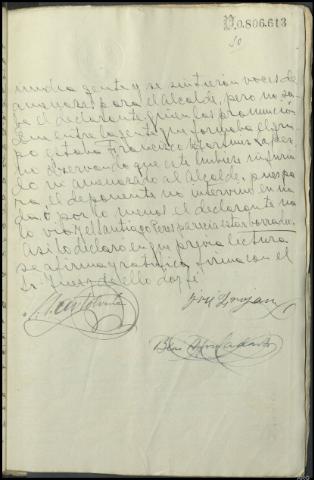 D.0.806.613
50
mucha gente y se sintieron voces de
amenazas para el Alcalde, pero no sa-
be el declarante quien las pronunció
Que entre la gente que formaba el gru-
po estaba Francisco
no observando que este
lo ni amenazado al Alcalde, pues pa-
ra el deponente no intervino en na-
da o por lo menos el declarante no
lo vio y el Santiago Peres parecia estar borracho.
Asi lo declaró en que previa lectura
se afirma y ratifica, firma con el
Sr. Juez de ello doy fe